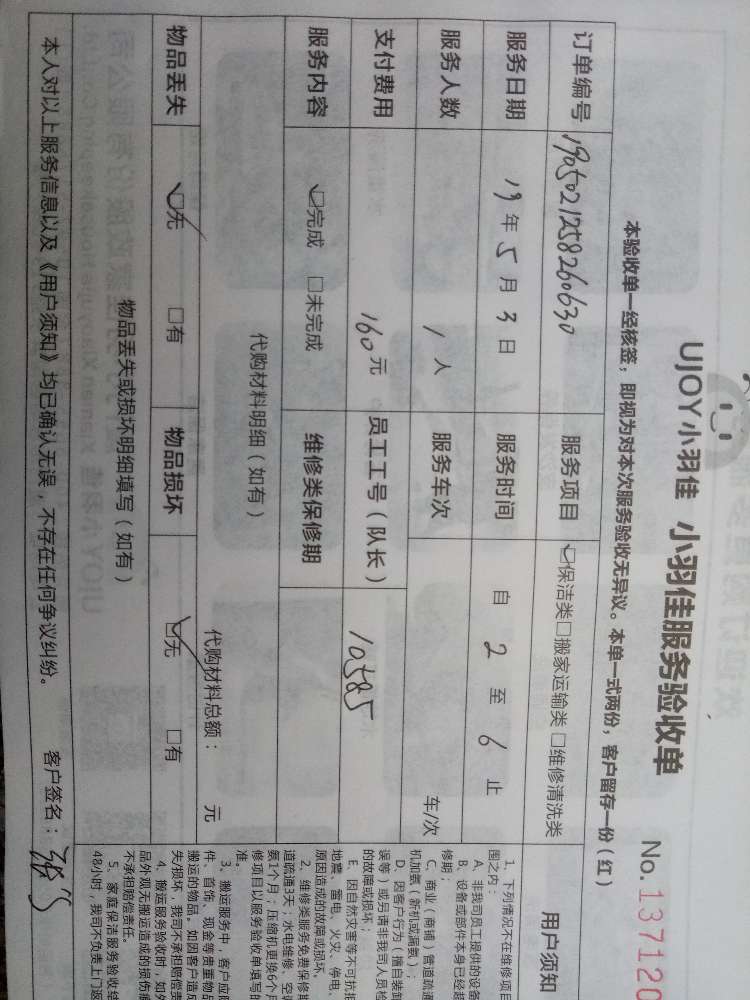 UJOY小羽佳 小羽佳服务验收单
No. 137120
本验收单一经核签，即视为对本次服务验收无异议。本单一式两份，客户留存一份（红）
订单编号 1905021258260630 服务项目 ☑保洁类□搬家运输类 □维修清洗类
服务日期 19年5月3日 服务时间 自 2 至 6 止
服务人数 1 人 服务车次 车/次
支付费用 160元 员工工号（队长） 10585
服务内容 ☑完成 □未完成 维修类保修期
代购材料明细（如有） 代购材料总额： 元
物品丢失 ☑无 □有 物品损坏 ☑无 □有
物品丢失或损坏明细填写（如有）
本人对以上服务信息以及《用户须知》均已确认无误，不存在任何争议纠纷。 客户签名：
用户须知
1、下列情况不在维修项目
围之内：
A、非我司员工提供的设备
B、设备或部件本身已经超
修期；
C、商业（商铺）管道疏通
机加氨（新机或漏氨）；
D、因客户行为（擅自装卸
误等）或另请非我司人员检
的故障或损坏；
E、因自然灾害等不可抗拒
地震、雷电、火灾、停电、
原因造成的故障或损坏。
2、维修类服务免费保修期
道疏通3天；水电维修、空调
氨1个月；压缩机更换6个月
修项目以服务验收单填写的
准
3、搬运服务中，客户应
件、首饰、现金等贵重物品
搬运的物品，如因客户造成
失/损坏，我司不承担赔偿责
4、搬运服务验收时，如外
品外观无搬运造成的损伤痕
不承担赔偿责任。
5、家庭保洁服务验收结
48小时，我司不负责上门返